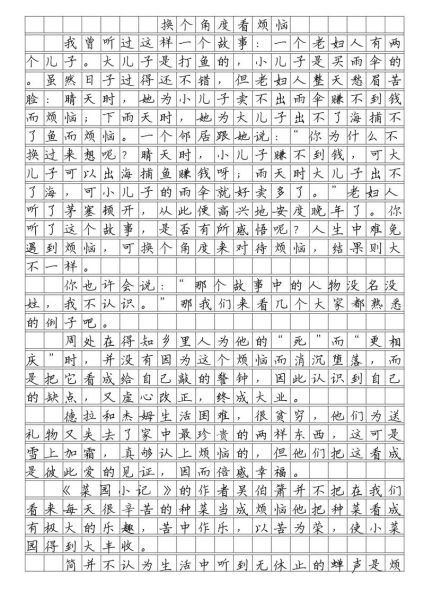 换个角度看烦恼
我曾听过这样一个故事：一个老妇人有两
个儿子。大儿子是打鱼的，小儿子是买雨伞的
。虽然日子过得还不错，但老妇人整天愁眉苦
脸：晴天时，她为小儿子卖不出雨伞赚不到钱
而烦恼；下雨天时，她为大儿子出不了海捕不
了鱼而烦恼。一个邻居跟她说：“你为什么不
换过来想呢？晴天时，小儿子赚不到钱，可大
儿子可以出海捕鱼赚钱呀；雨天时大儿子出不
了海，可小儿子的雨伞就好卖多了。”老妇人
听了茅塞顿开，从此便高兴地安度晚年了。你
听了这个故事，是否有所感悟呢？人生中难免
遇到烦恼，可换个角度来对待烦恼，结果则大
不一样。
你也许会说：“那个故事中的人物没名没
姓，我不认识。”那我们来看几个大家都熟悉
的例子吧。
周处在得知乡里人为他的“死”而“更相
庆”时，并没有因为这个烦恼而消沉堕落，而
是把它看成给自己敲的警钟，因此认识到自己
的缺点，又虚心改正，终成大业。
德拉和杰姆生活困难，很贫穷，他们为送
礼物又失去了家中最珍贵的两样东西，这可是
雪上加霜，真够认上烦恼的，但他们把这看成
是彼此爱的见证，因而倍感幸福。
《菜园小记》的作者吴伯箫并不把在我们
看来每天很辛苦的种菜当成烦恼他把种菜看成
有极大的乐趣，苦中作乐，以苦为荣，使小菜
园得到大丰收。
简并不认为生活中听到无休止的蝉声是烦